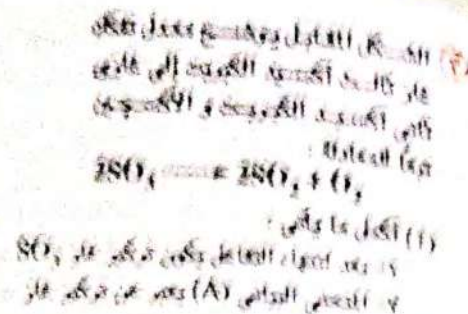 (٢) الشكل المقابل يوضح معدل تفكك
غاز ثالث أكسيد الكبريت إلى غازي
ثاني أكسيد الكبريت و الأكسجين
تبعاً للمعادلة :
2SO₃ ⟶ 2SO₂ + O₂
(١) أكمل ما يأتي :
١- بعد انتهاء التفاعل يكون تركيز غاز SO₃
٢- المنحنى البياني (A) يعبر عن تركيز غاز